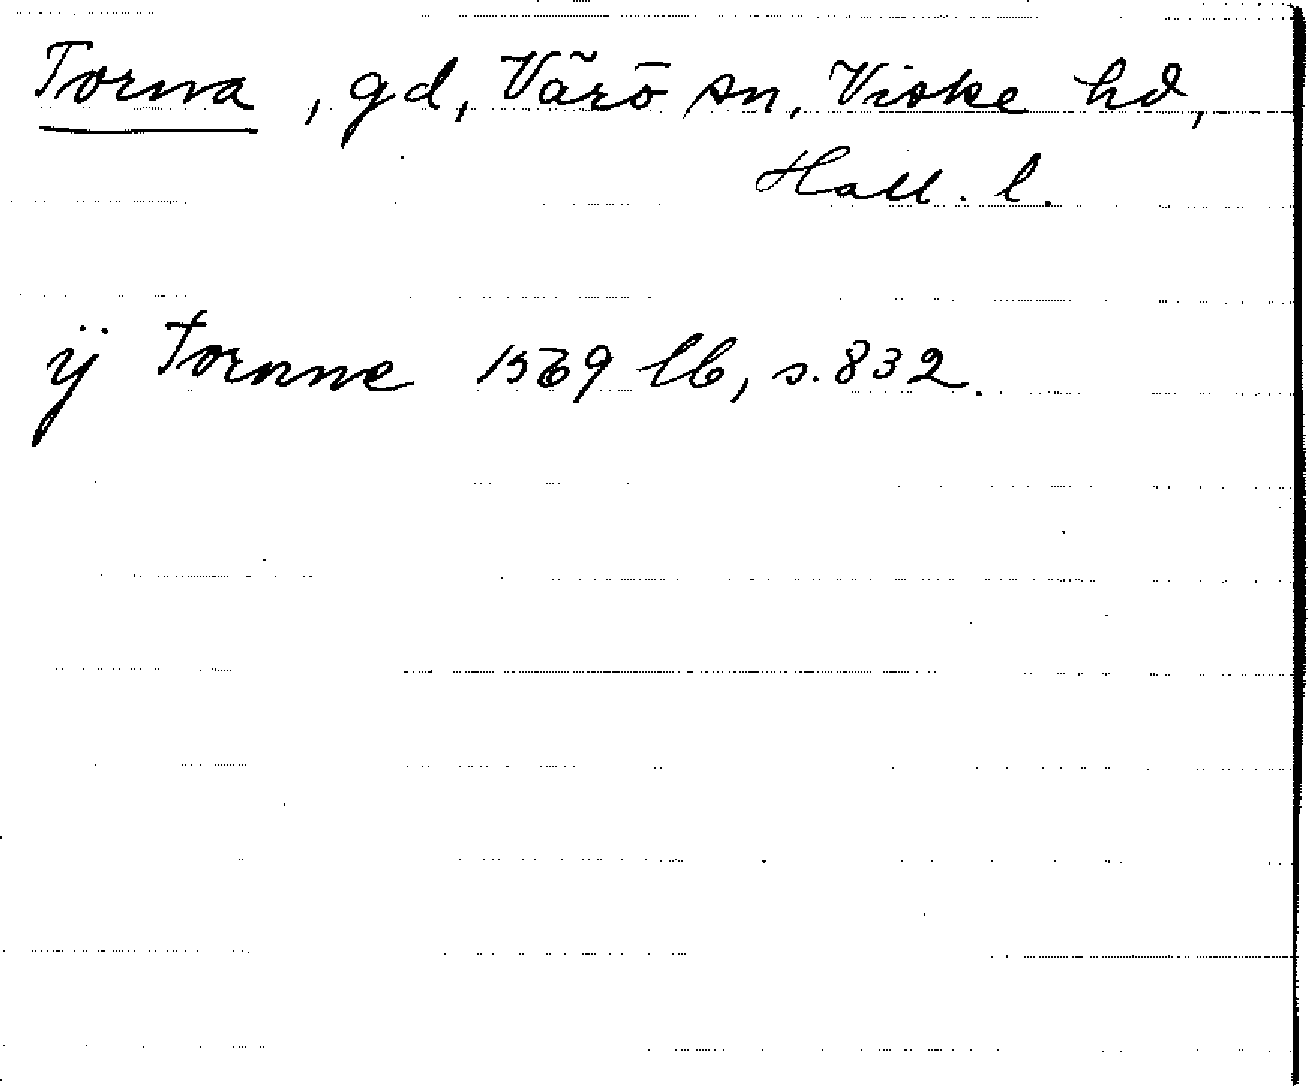 Torna, gd, Värö sn, Viske hd,
Hall. l.
ÿ Tornne 1569 lb, s. 832.